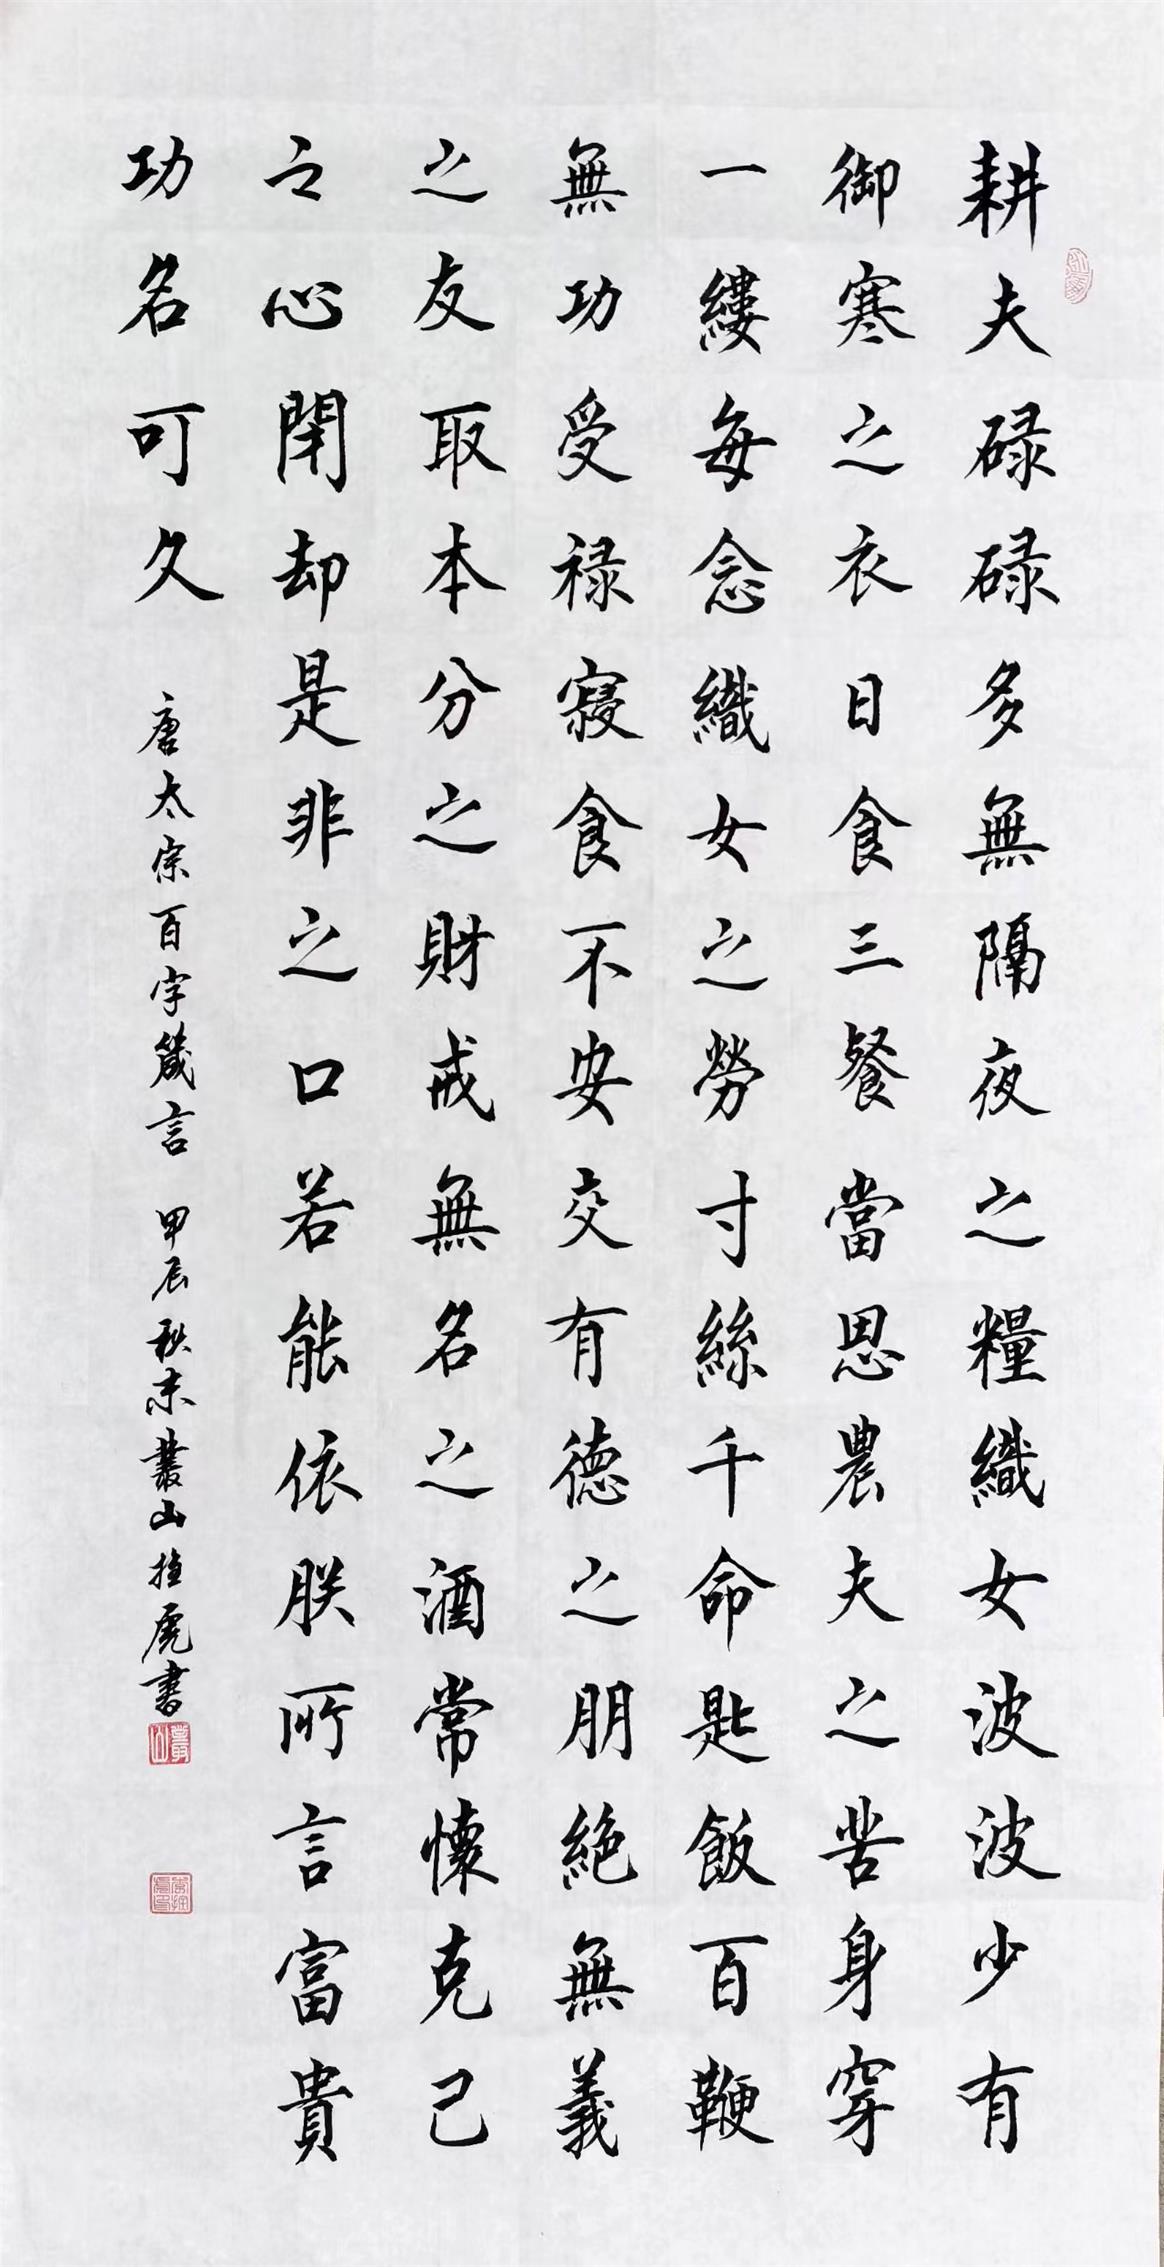 耕夫碌碌多無隔夜之糧織女波波少有
御寒之衣日食三餐當思農夫之苦身穿
一縷每念織女之勞寸絲千命匙飯百鞭
無功受禄寝食不安交有德之朋絕無義
之友取本分之財戒無名之酒常懷克己
之心閉却是非之口若能依朕所言富貴
功名可久
唐太宗百字箴言 甲辰秋末叢山 虎書
叢山